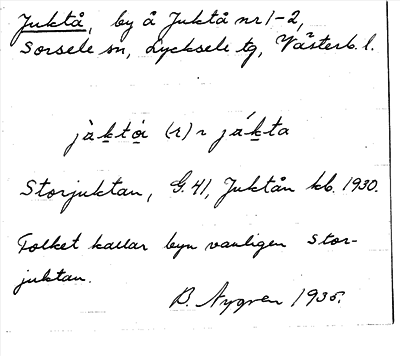 Juktå, by å Juktå nr 1-2,
Sorsele sn, Lycksele tg, Västerb. l.
jàktå̀ (r) ~ jákta
Storjuktan, G. 41, Juktån kb. 1930.
Folket kallar byn vanligen Stor-
juktan.
B. Nygren 1935.